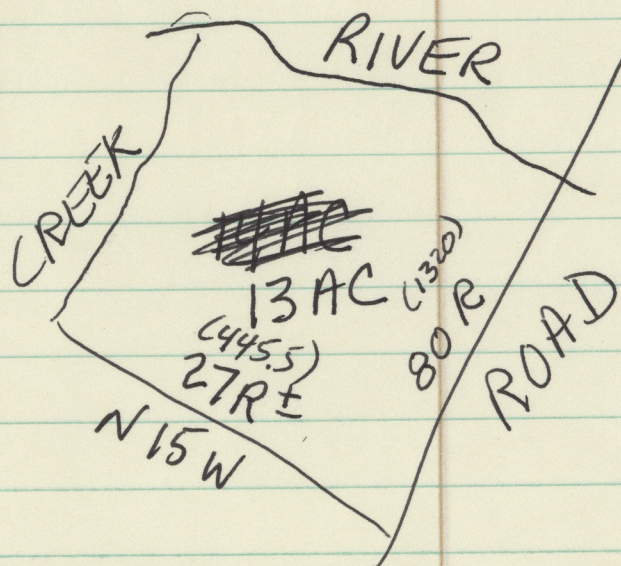 RIVER
CREEK
14 AC
13 AC
(1320)
80 R
ROAD
(445.5)
27R ±
N 15 W